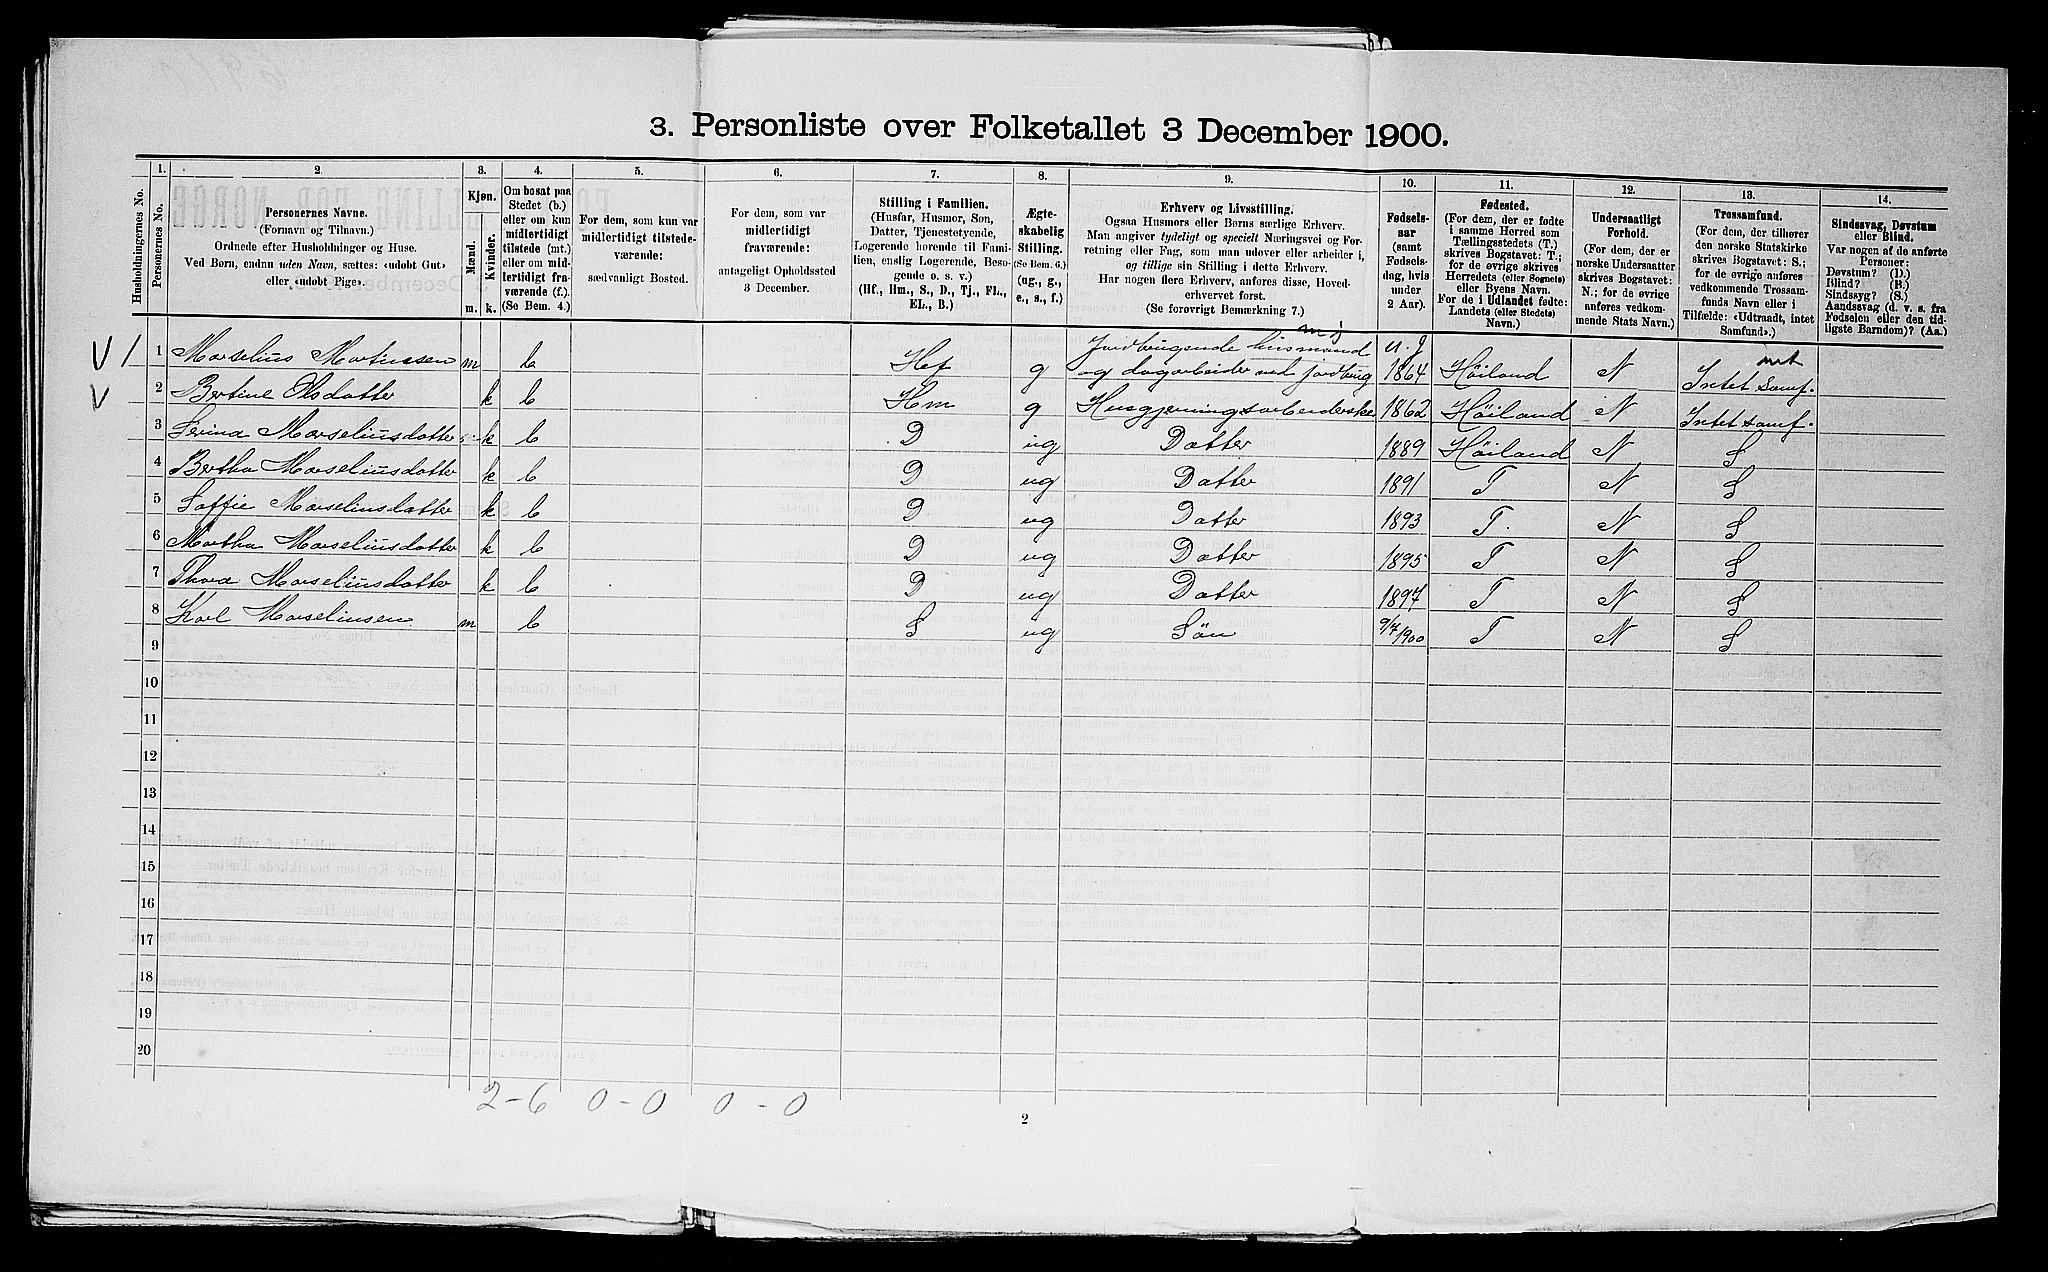 3. Personliste over Folketallet 3 December 1900.
Husholdningernes No.
1.
Personernes No.
2.
Personernes Navne.
(Fornavn og Tilnavn.)
Ordnede efter Husholdninger og Huse.
Ved Børn, endnu uden Navn, sættes: «udøbt Gut»
eller «udøbt Pige».
3.
Kjøn.
Mænd.
Kvinder.
m. k.
4.
Om bosat paa
Stedet (b.)
eller om kun
midlertidigt
tilstede (mt.)
eller om mid-
lertidigt fra-
værende (f.).
(Se Bem. 4.)
5.
For dem, som kun var
midlertidigt tilstede-
værende:
sædvanligt Bosted.
6.
For dem, som var
midlertidigt
fraværende:
antageligt Opholdssted
3 December.
7.
Stilling i Familien.
(Husfar, Husmor, Søn,
Datter, Tjenestetyende,
Logerende hørende til Fami-
lien, enslig Logerende, Besø-
gende o. s. v.)
(Hf., Hm., S., D., Tj., FL.,
EL., B.)
8.
Ægte-
skabelig
Stilling.
(Se Bem. 6.)
(ug., g.,
e., s., f.)
9.
Erhverv og Livsstilling.
Ogsaa Husmors eller Børns særlige Erhverv.
Man angiver tydeligt og specielt Næringsvei og For-
retning eller Fag, som man udøver eller arbeider i,
og tillige sin Stilling i dette Erhverv.
Har nogen flere Erhverv, anføres disse, Hoved-
erhvervet først.
(Se forøvrigt Bemærkning 7.)
10.
Fødsels-
aar
(samt
Fødsels-
dag, hvis
under
2 Aar).
11.
Fødested.
(For dem, der er fødte
i samme Herred som
Tællingsstedets (T.)
skrives Bogstavet: T.;
for de øvrige skrives
Herredets (eller Sognets)
eller Byens Navn.
For de i Udlandet fødte:
Landets (eller Stedets)
Navn.)
12.
Undersaatligt
Forhold.
(For dem, der er
norske Undersaatter
skrives Bogstavet:
N.; for de øvrige
anføres vedkom-
mende Stats Navn.)
13.
Trossamfund.
(For dem, der tilhører
den norske Statskirke
skrives Bogstavet: S.;
for de øvrige anføres
vedkommende Trossam-
funds Navn eller i
Tilfælde: «Udtraadt, intet
Samfund».)
14.
Sindssvag, Døvstum
eller Blind.
Var nogen af de anførte
Personer:
Døvstum? (D.)
Blind? (B.)
Sindssyg? (S.)
Aandssvag (d. v. s. fra
Fødselen eller den tid-
ligste Barndom)? (Aa.)
V 1 1 Marselius Martinssen m b Hf g Jordbrugende husmand mj og dagarbeider ved jordbrug u.j 1864 Höiland N Intet samf.
V 2 Bertine Olsdatter k b Hm g Husgjerningsarbeiderske 1862 Höiland N Intet samf.
3 Serina Marseliusdatter k b D ug Datter 1889 Höiland N S
4 Bertha Marseliusdatter k b D ug Datter 1891 T N S
5 Soffie Marseliusdatter k b D ug Datter 1893 T. N S
6 Martha Marseliusdatter k b D ug Datter 1895 T N S
7 Thora Marseliusdatter k b D ug Datter 1897 T N S
8 Karl Marseliussen m b S ug Sön 9/7 1900 T N S
9
10
11
12
13
14
15
16
17
18
19
20
2-6 0-0 0-0
2